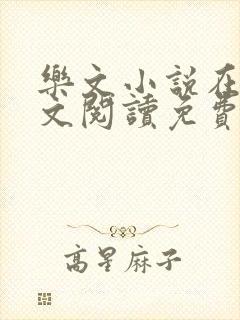 樂文小說在
文閱讀免費
高星麻子